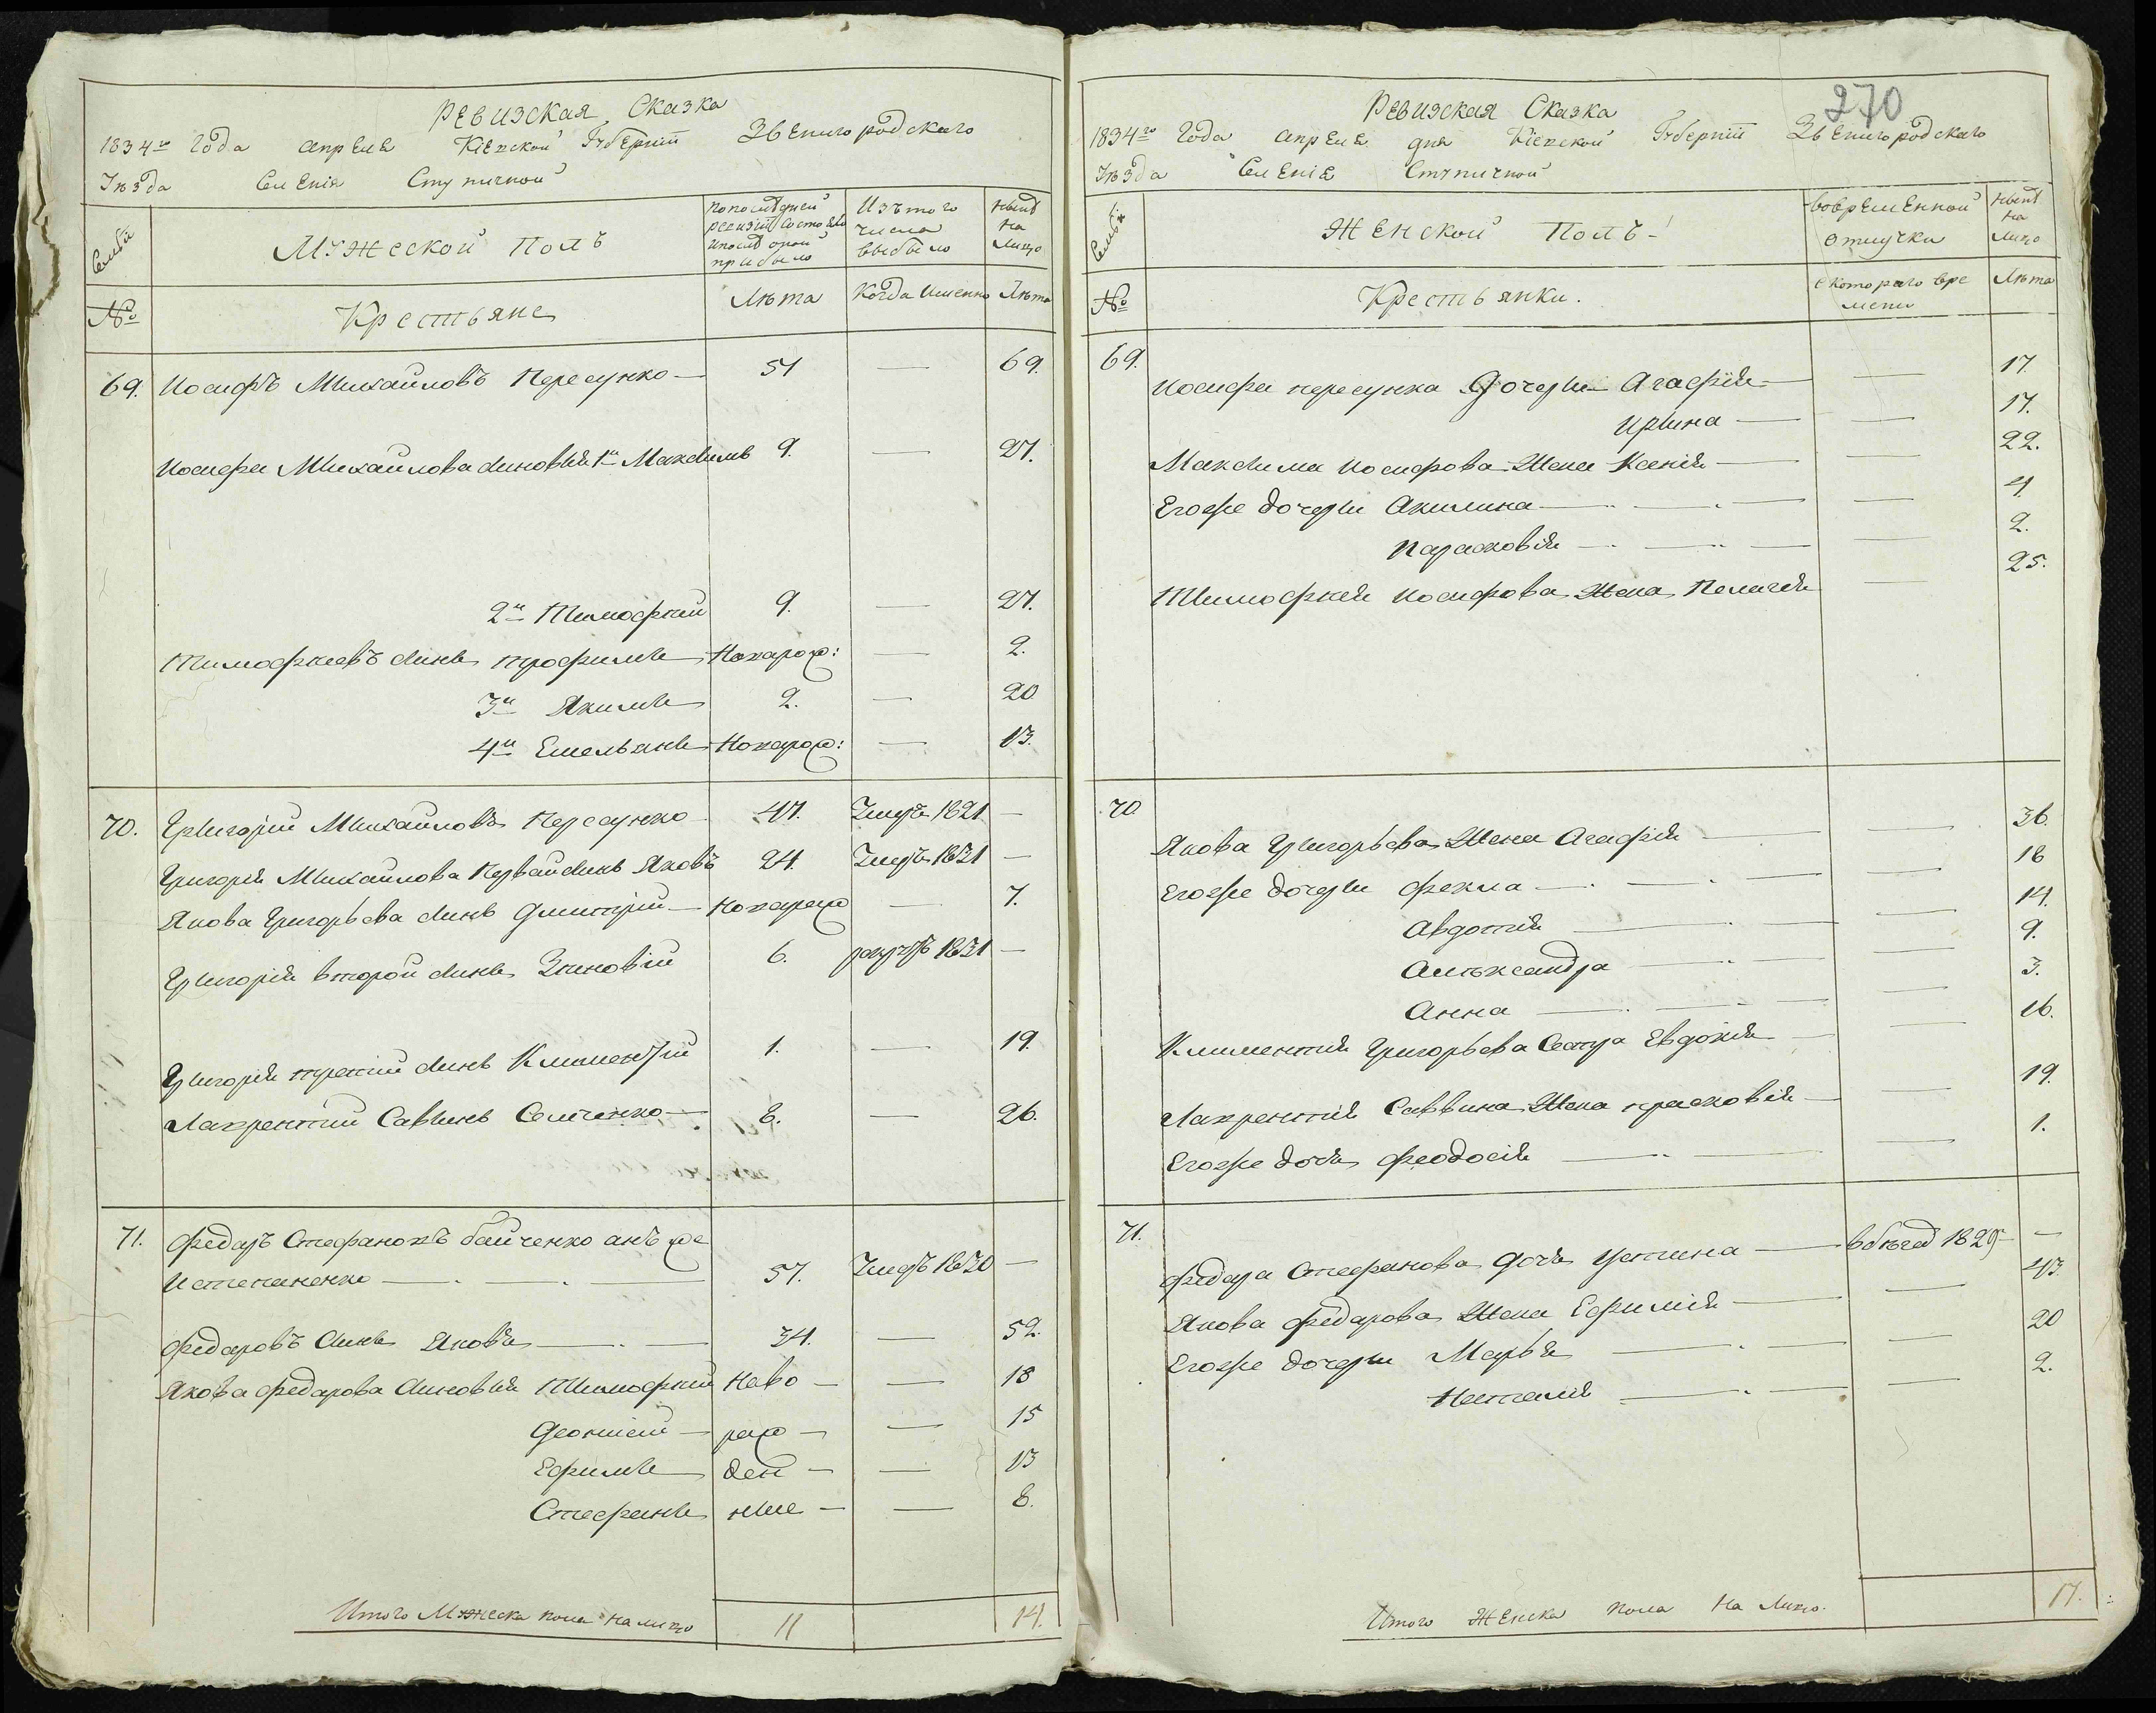 Ревизская Сказка
1834го Года апреля Кіевской Губерніи Звенигородскаго
Уѣзда Селенія Ступичной
Семьи
Мужеской Полъ
По последней ревизіи состояло и послѣ оной прибыло
Изъ того числа выбыло
Нынѣ на лицо
№
Крестьяне
Лѣта
Когда именно
Лѣта
69. Иосифъ Михайловъ Пересунко — 51 — 69.
Иосифа Михайлова синовья 1й Максимъ 9. — 27.
2й Тимофѣй 9. — 27.
Тимофѣевъ синъ Трофимъ Новорож: — 2.
3й Якимъ 2. — 20
4й Емельянъ Новорож: — 13.
70. Григорий Михайловъ Пересунко 47. Умеръ 1821 —
Григорія Михайлова Первой синъ Яковъ 24. Умеръ 1831 —
Якова Григорьева синъ Дмитрій — Новорож — 7.
Григорія второй синъ Зиновій 6. рекрутъ 1831 —
Григорія третій синъ Климентій 1. — 19.
Лаврентий Савинъ Семченко — 8. — 26.
71. Федаръ Стефановъ байченко онъ же
и Степаненко — 57. Умеръ 1830 —
Федаровъ Синъ Яковъ — 34. — 52.
Якова Федарова Синовья Тимофѣй Ново — — 18
Деонисий — рож — — 15
Ефимъ ден — — 13
Стефанъ ные — — 8.
Итого Мужеска пола на лицо 11 14.
270
Ревизская Сказка
1834го Года апреля дня Кіевской Губерніи Звенигородскаго
Уѣзда Селеніе Ступичной
Семьи
Женской Полъ
Во временной отлучки
Нынѣ на лицо
№
Крестьянки.
С котораго времени
Лѣта
69. Иосифа пересунка Дочери Агафія — — 17.
Ирина — — 17.
Максима Иосифова Жена Ксенія — — 22.
Егоже дочери Акилина — — 4.
Парасковія — — 2.
Тимофѣя Иосифова Жена Пелагея — 25.
70 Якова Григорьева Жена Агафія — — 36.
Егоже дочери Фекла — — 18
Авдотія — — 14.
Алѣксандра — — 9.
Анна — — 3.
Климентия Григорьева Сестра Евдокія — — 16.
Лаврентия Саввина Жена прасковія — — 19.
Егоже дочь Феодосія — — 1.
71. Федара Стефанова Дочь Устина — в бѣгах 1829 —
Якова Федарова Жена Ефимія — — 43.
Егоже дочери Марья — — 20
Наталія — — 2.
Итого Женска пола на Лицо. 17.